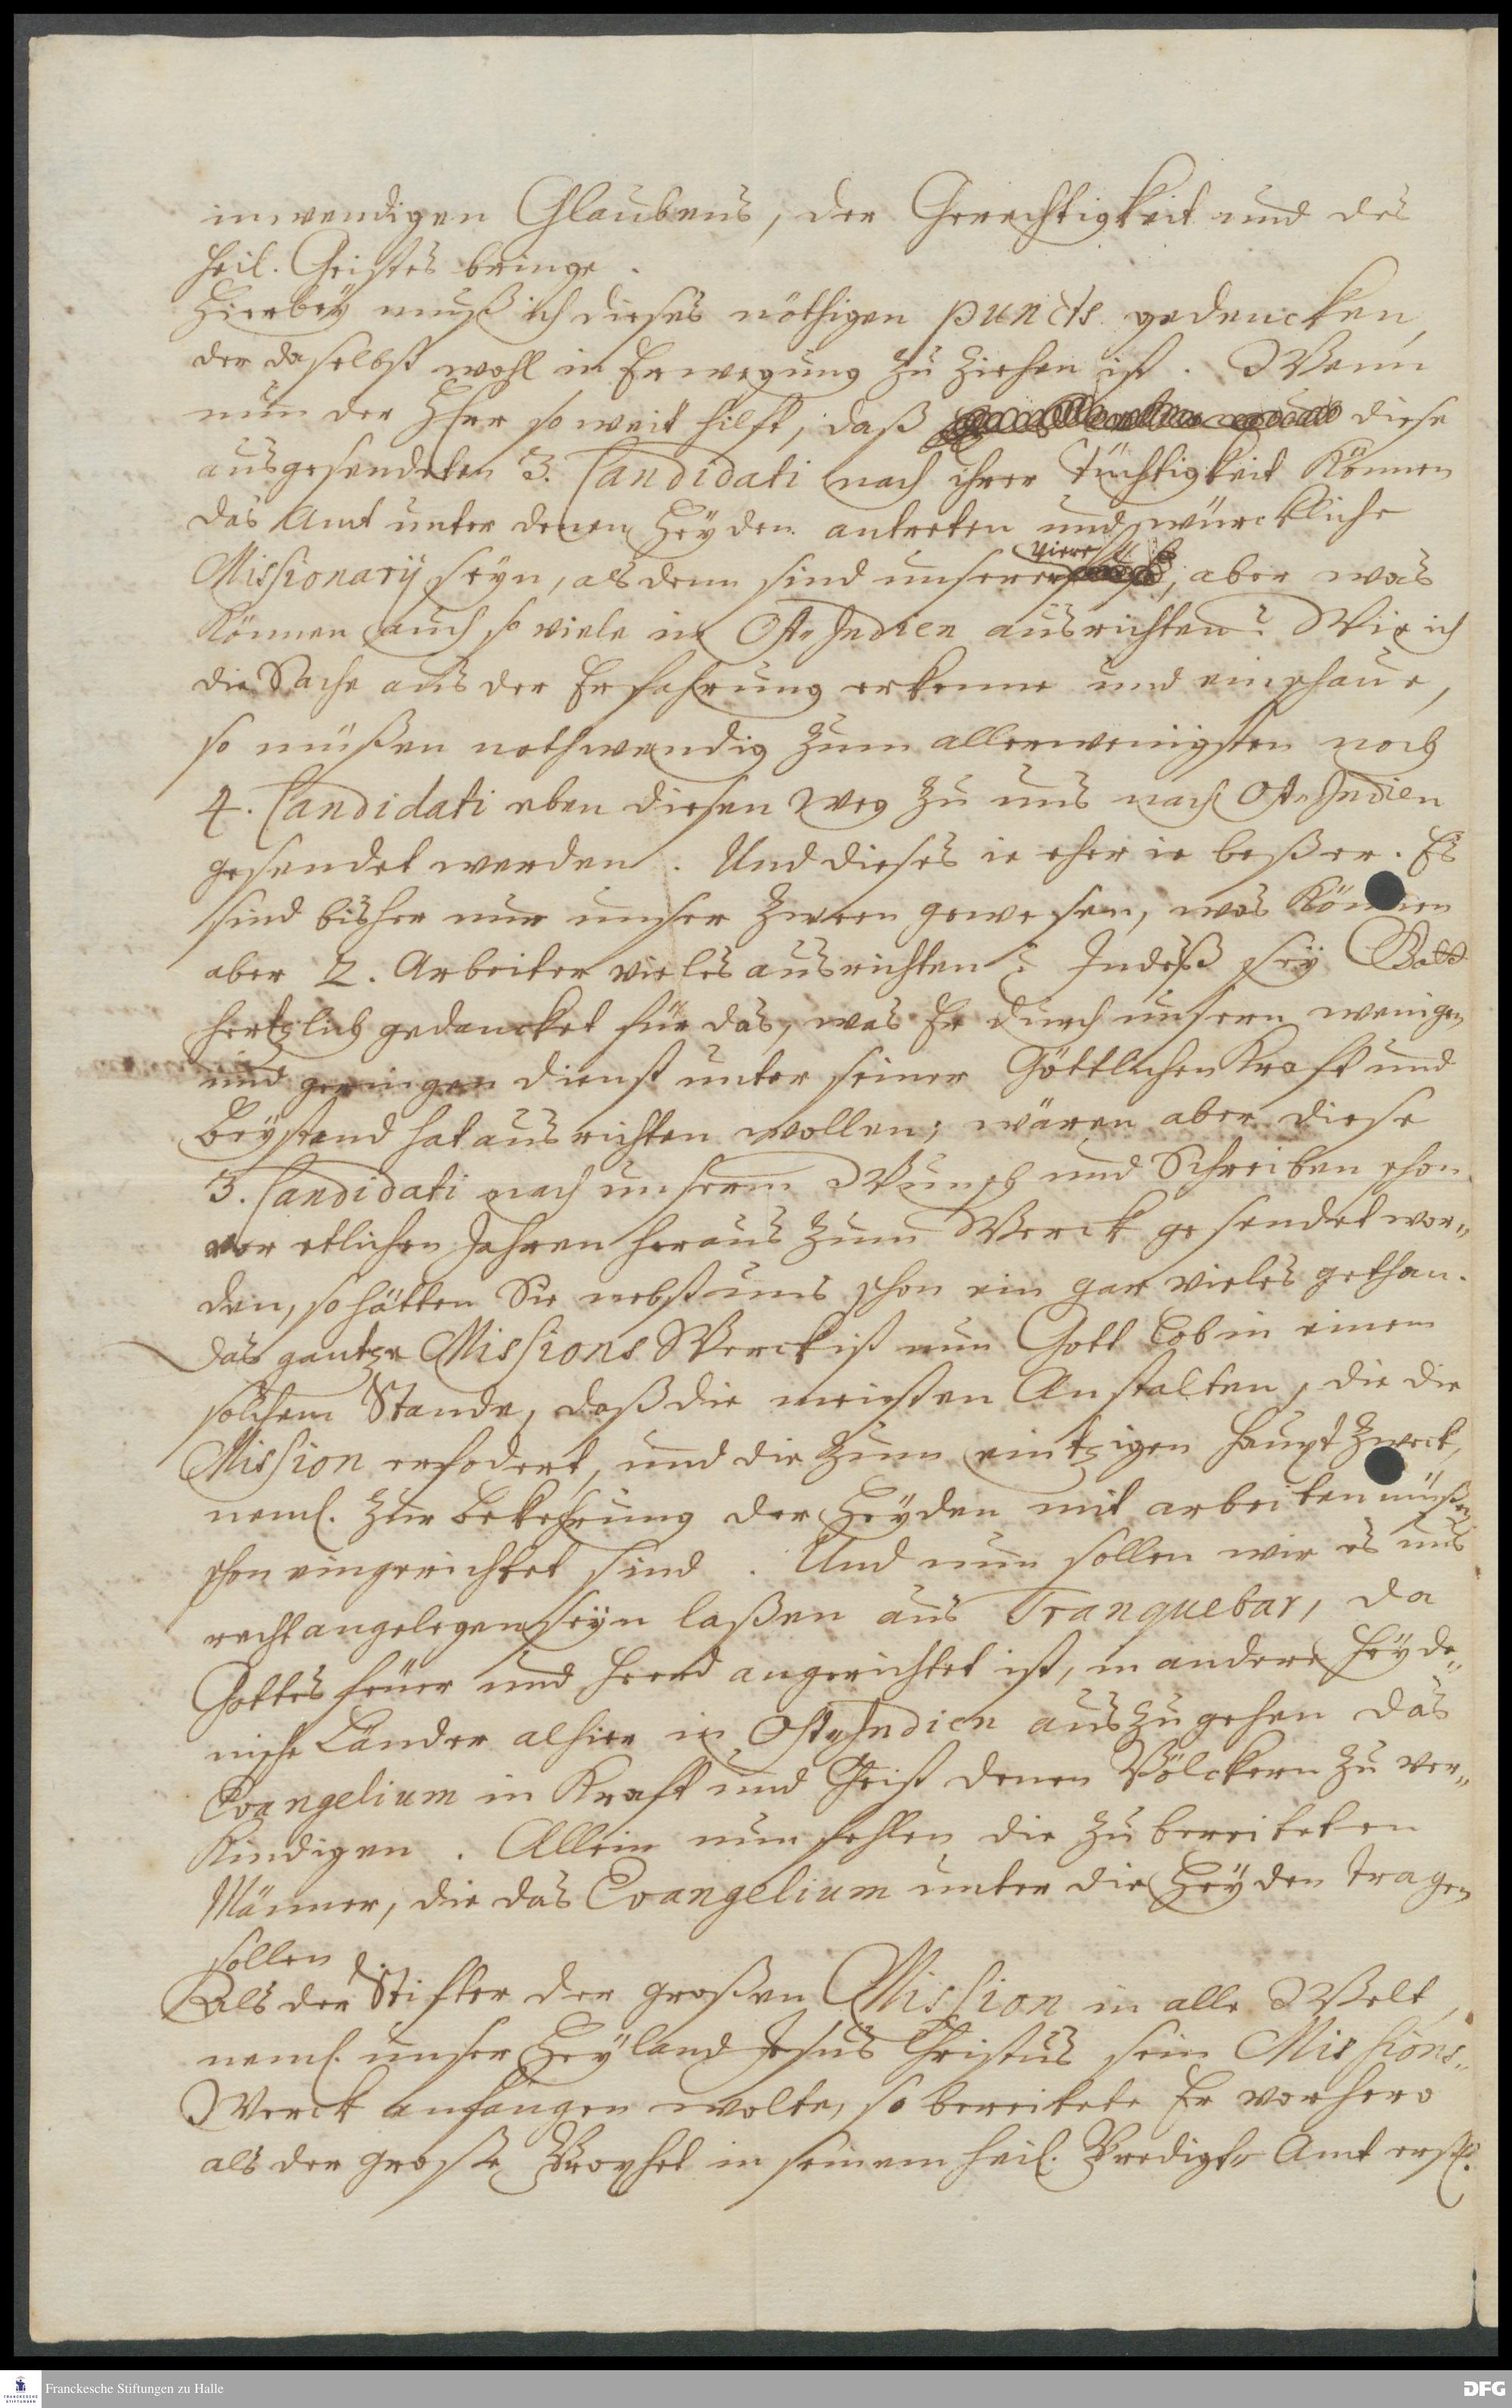 inwendigen Glaubens, der Gerechtigkeit und des
heil. Geistes bringe.
Hierbeÿ muß ich dieses nöthigen puncts gedencken,
der daselbst wohl in Erwegung zu ziehen ist. Wenn
nun der HErr so weit hilfft, daß diese
ausgesendeten 3. Candidati nach ihrer Tüchtigkeit können
das Amt unter denen Heÿden antreten und würckliche
Missionarÿ seÿn, als denn sind unserer viere, aber was
können auch so viele in Ost-Indien ausrichten? Wie ich
die Sache aus der Erfahrung erkenne und einschaue,
so müßen nothwendig zum allerwenigsten noch
4. Candidati eben diesen Weg zu uns nach Ost-Indien
gesendet werden. Und dieses ie eher ie beßer. Es
sind bisher nur unser zween gewesen, was können
aber 2. Arbeiter vieles ausrichten? Indeß seÿ Gott
hertzlich gedancket für das, was Er durch unsern wenigen
und geringen dienst unter seiner Göttlichen Krafft und
Beÿstand hat ausrichten wollen; wären aber diese
3. Candidati nach unserm Wunsch und Schreiben schon
vor etlichen Jahren heraus zum Werck gesendet wor-
den, so hätten Sie nebst uns schon ein gar vieles gethan.
das gantze Missions Werck ist nun Gott Lob in einem
solchem Stande, daß die meisten Anstalten, die die
Mission erfodert, und die zum eintzigen Haupt Zweck,
neml. zur Bekehrung der Heÿden mit arbeiten müßen
schon eingerichtet sind. Und nun sollen wir es uns
recht angelegen seÿn laßen aus Tranquebar, da
Gottes feuer und Heerd angerichtet ist, in andere Heÿde-
nische Länder alhier in Ost-Indien auszugehen das
Evangelium in Krafft und Geist denen Völckern zu ver-
kindigen. Allein nun fehlen die zubereiteten
Männer, die das Evangelium unter die Heÿden tragen
sollen
Als der Stifter der großen Mission in alle Welt,
neml. unser Heÿland Jesus Christus sein Missions-
Werck anfangen wolte, so bereitete Er vorhero
als der große Prophet in seinem heil. Predigt-Amt erstl.
Franckesche Stiftungen zu Halle
DFG